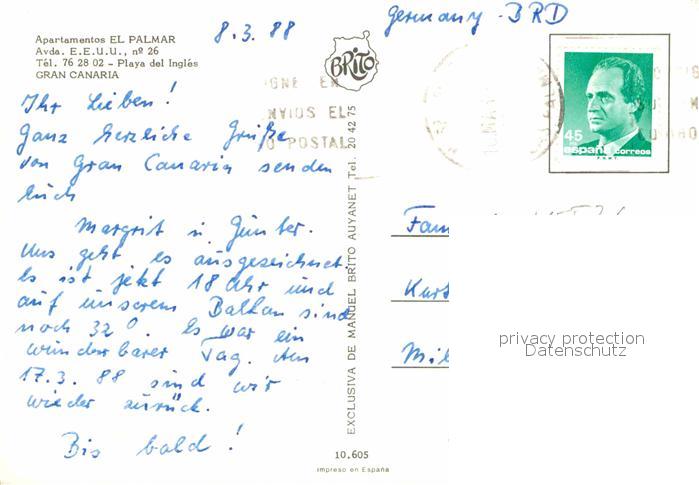 Apartamentos EL PALMAR
Avda. E.E.U.U., nº 26
Tél. 76 28 02 - Playa del Inglés
GRAN CANARIA
8.3.88
Germany - BRD
BRITO
NVIOS EL
POSTAL
45
españa correos
Ihr Lieben!
Ganz herzliche Grüße
von Gran Canaria senden
Euch
Margrit u Günter.
Uns geht es ausgezeichnet.
Es ist jetzt 18 Uhr und
auf unserem Balkan sind
noch 32°. Es war ein
wunderbarer Tag. Am
17.3.88 sind wir
wieder zurück.
Bis bald!
EXCLUSIVA DE MANUEL BRITO AUYANET Tel. 20 42 75
Fam
Kurt
privacy protection
Datenschutz
10.605
Impreso en España